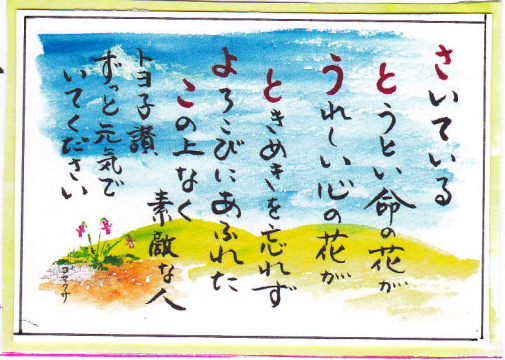 さいている
とうとい命の花が
うれしい心の花が
ときめきを忘れず
よろこびにあふれた
この上なく
素敵な人
トヨ子讃
ずっと元気で
いてください
コマクサ